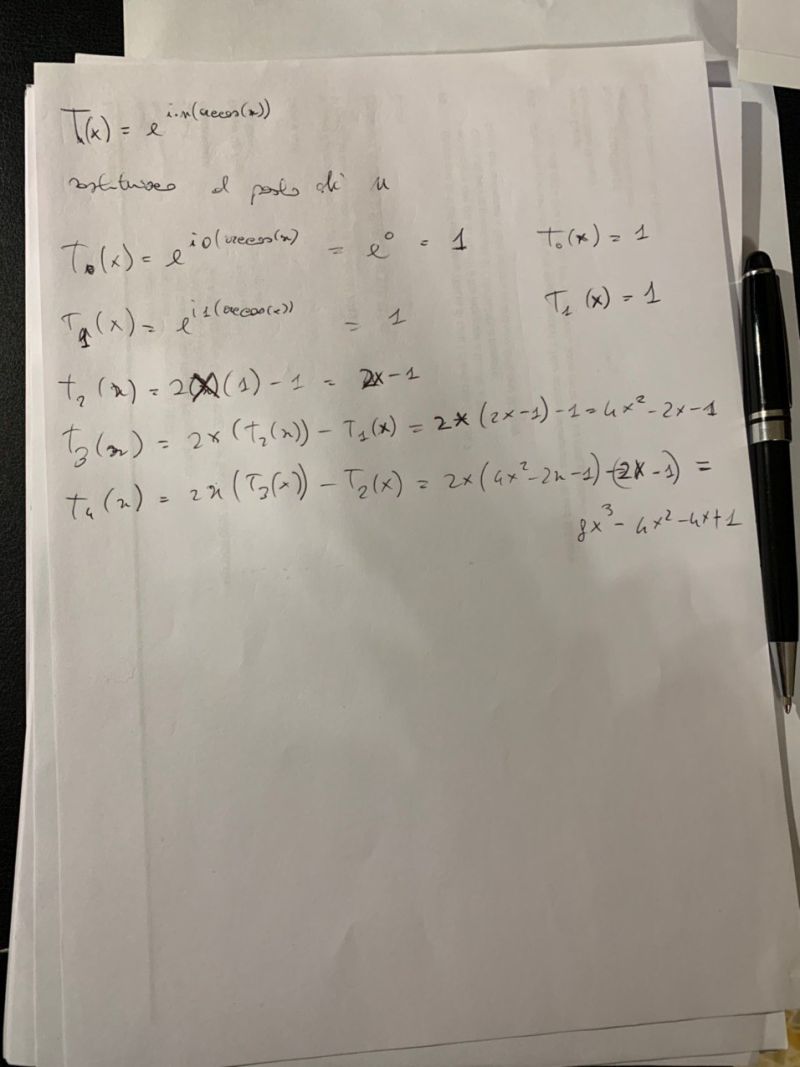 Tₙ(x) = e^{i·n(arccos(x))}
sostituisco al posto di n
T₀(x) = e^{i0(arccos(x)} = e⁰ = 1 T₀(x) = 1
T₁(x) = e^{i1(arccos(x))} = 1 T₁(x) = 1
T₂(x) = 2(x)(1) - 1 = 2x - 1
T₃(x) = 2x(T₂(x)) - T₁(x) = 2x(2x-1) - 1 = 4x² - 2x - 1
T₄(x) = 2x(T₃(x)) - T₂(x) = 2x(4x² - 2x - 1) - (2x - 1) =
8x³ - 4x² - 4x + 1